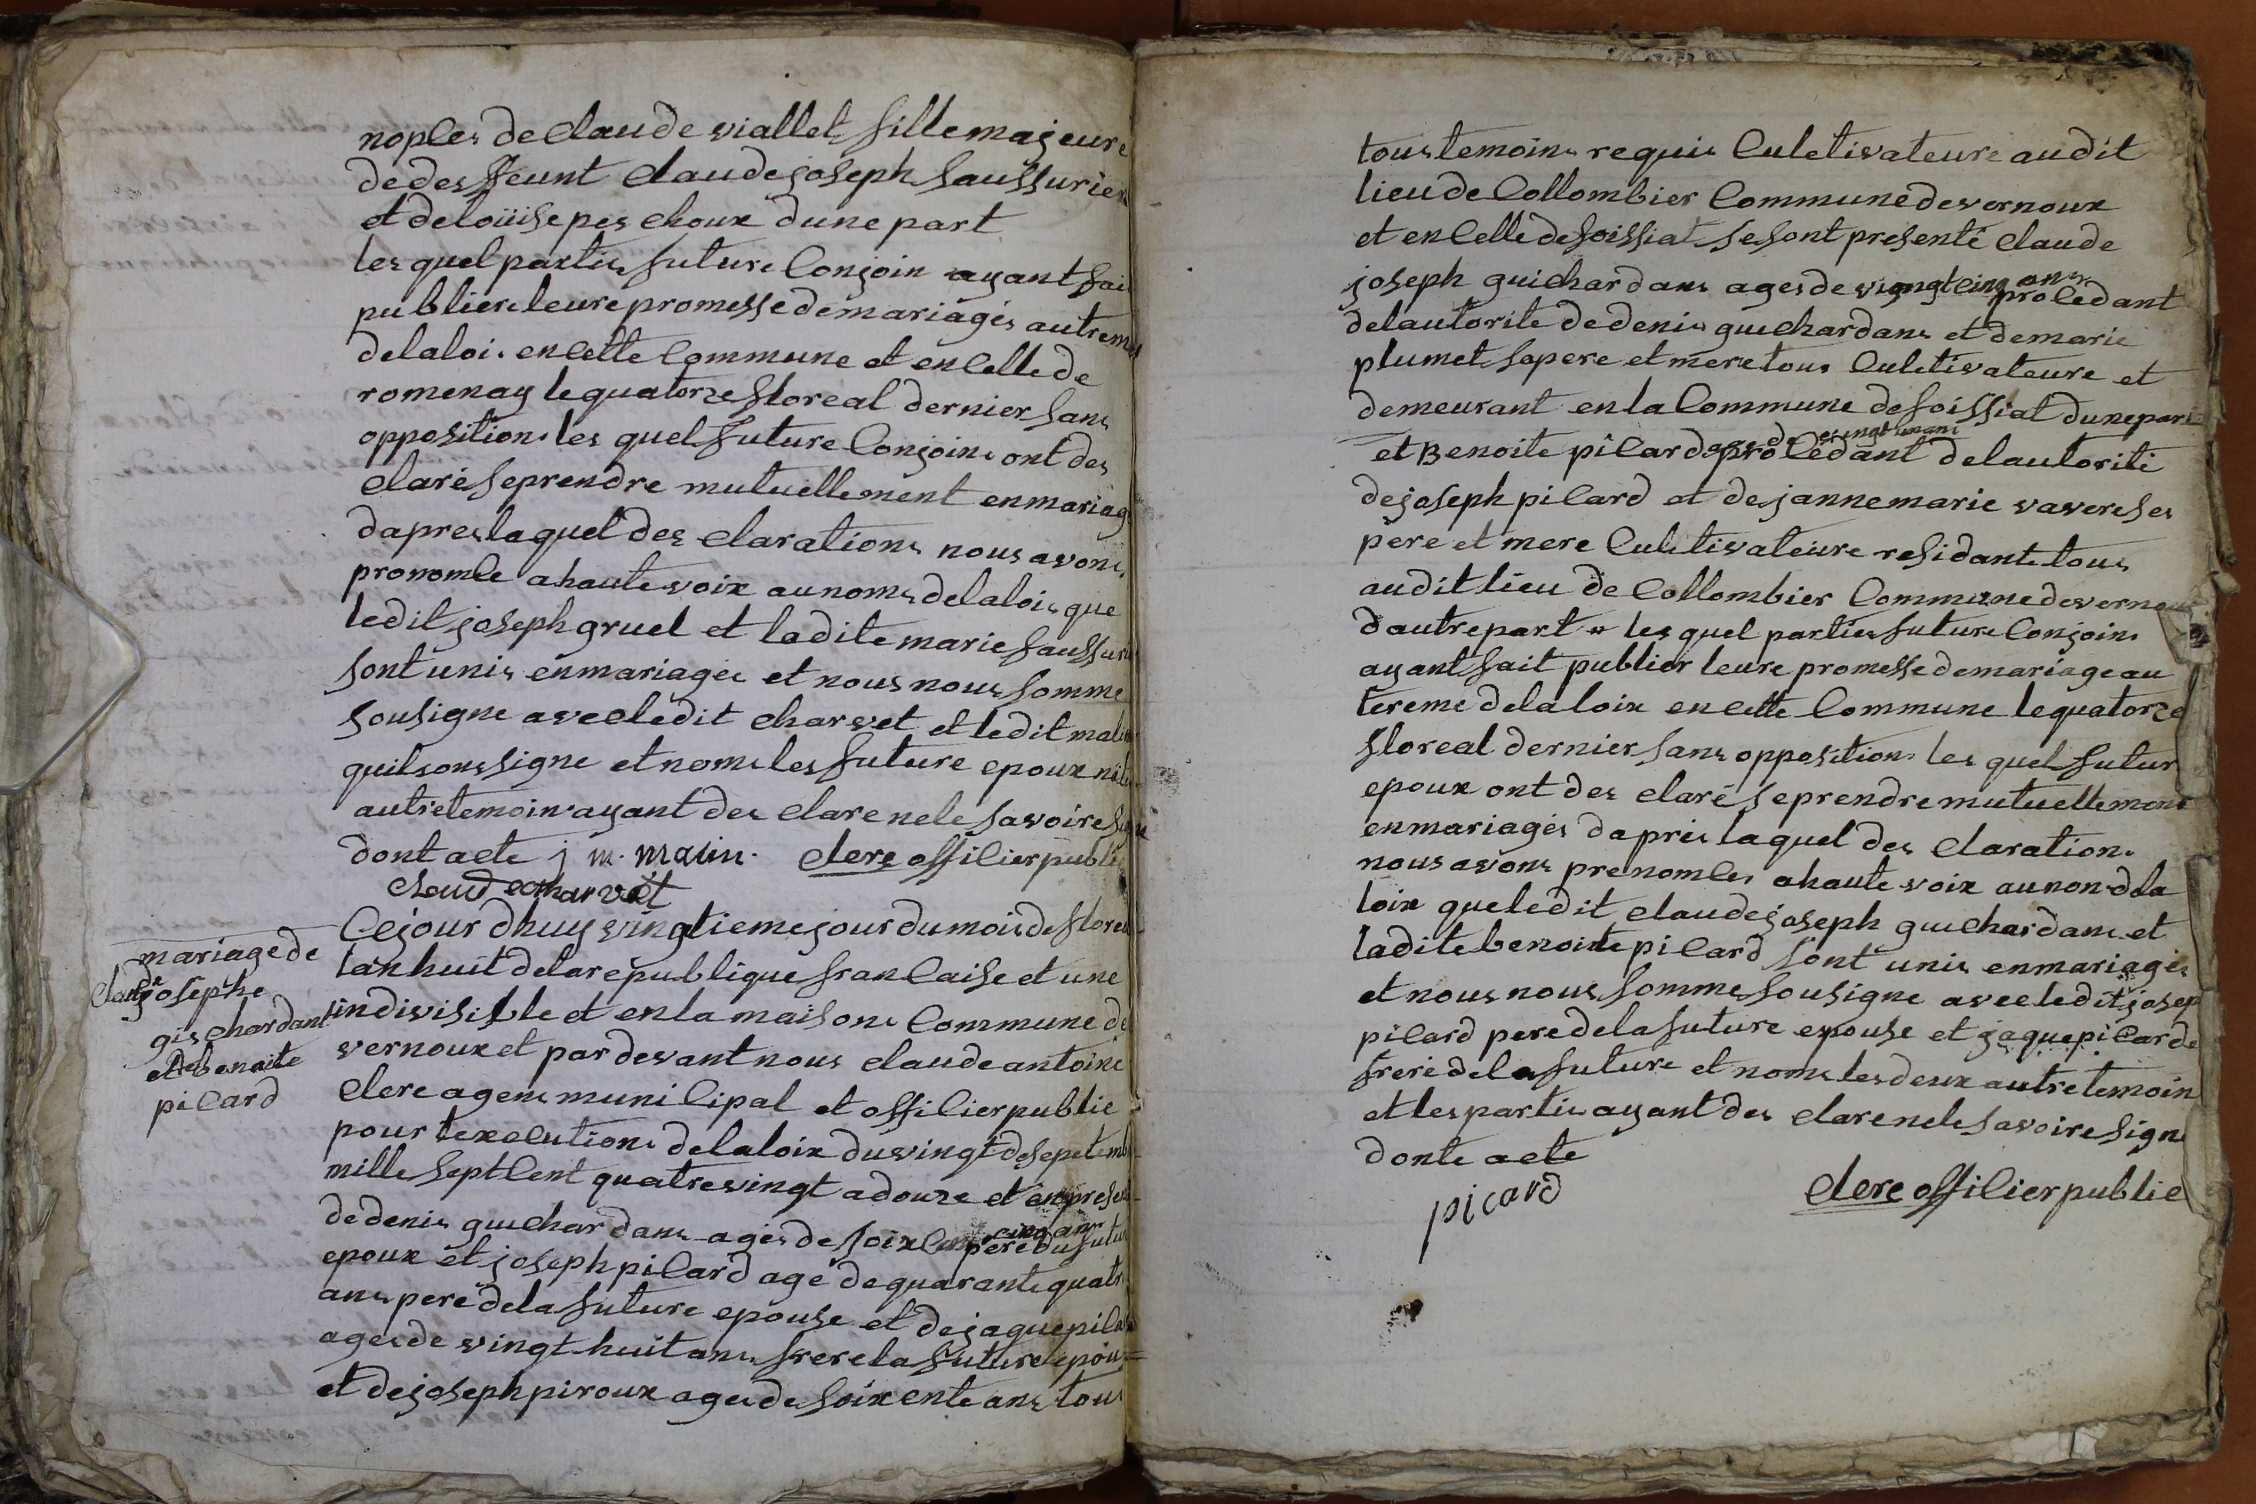 noples de claude viallet fille majeure
de desfeunt claude joseph saussurier
et de loüise pes choux dune part
les quel partis future conjoin ayant fai
publier leure promesse de mariages autreme
de la loi. en cette commune et en celle de
romenay le quatorze floreal dernier sans
opposition. les quel future conjoins ont des
claré se prendre mutuellement en mariag
dapres laquel des clarations nous avons
prononce a haute voix au noms de la lois que
le dit joseph gruel et la dite marie saussur
sont unis en mariages et nous nous somme
sousigne avec le dit charvet et le dit
quil sous signe et noms les future epoux ni
autre temoins ayant des clare ne le savoire
dont acte j m. maun. clere offilier public
claud charvet
mariage de
claude josephe
gischardant
et de benoite
picard
Ce jour dhuy vingtieme jour du mois de flore
lan huit de la république francaise et une
indivisible et en la maisons commune de
vernoux et par devant nous claude antoine
clere agens municipal et offilier public
pour lexecutions de la loix du vingt de septemb
mille sept cent quatre vingt a douze et en prese
de denis guichardans ages de soixante cinq ans pere du futu
epoux et joseph picard agé de quarante quatr
ans pere de la future epouse et de jaque pica
ages de vingt huit ans frere la future epou
et de joseph piroux ages de soixente ans tous
tous temoins requis culetivateure au dit
lieu de collombier commune de vernoux
et en celle de foissiat se sont presenté claude
joseph guichardans ages de vingt cinq ans procedant
de lautorite de denis guichardans et de marie
plumet sa pere et mere tous culetivateure et
demeurant en la commune de foissiat dune part
et Benoite picard age de vingt un ans procedant de lautorité
de joseph picard et de janne marie vavere ses
pere et mere culetivateure residante tous
au dit lieu de collombier commune de vernoux
dautre part les quel parties future conjoins
ayant fait publier leure promesse de mariage au
tereme de la loix en cette commune le quatorze
floreal dernier sans opposition. les quel futur
epoux ont des claré se prendre mutuellement
en mariages dapres la quel des claration.
nous avons prenomles a haute voix au non d la
loix que le dit claude joseph guichardans et
la dite benoite picard sont unis en mariages
et nous nous somme sousigne avec le dit josep
picard pere de la future epouse et jaque picarde
frere de la future et noms les deux autre temoin
et les partis ayant des clare ne le savoire signe
donte acte
picard clere offilier public